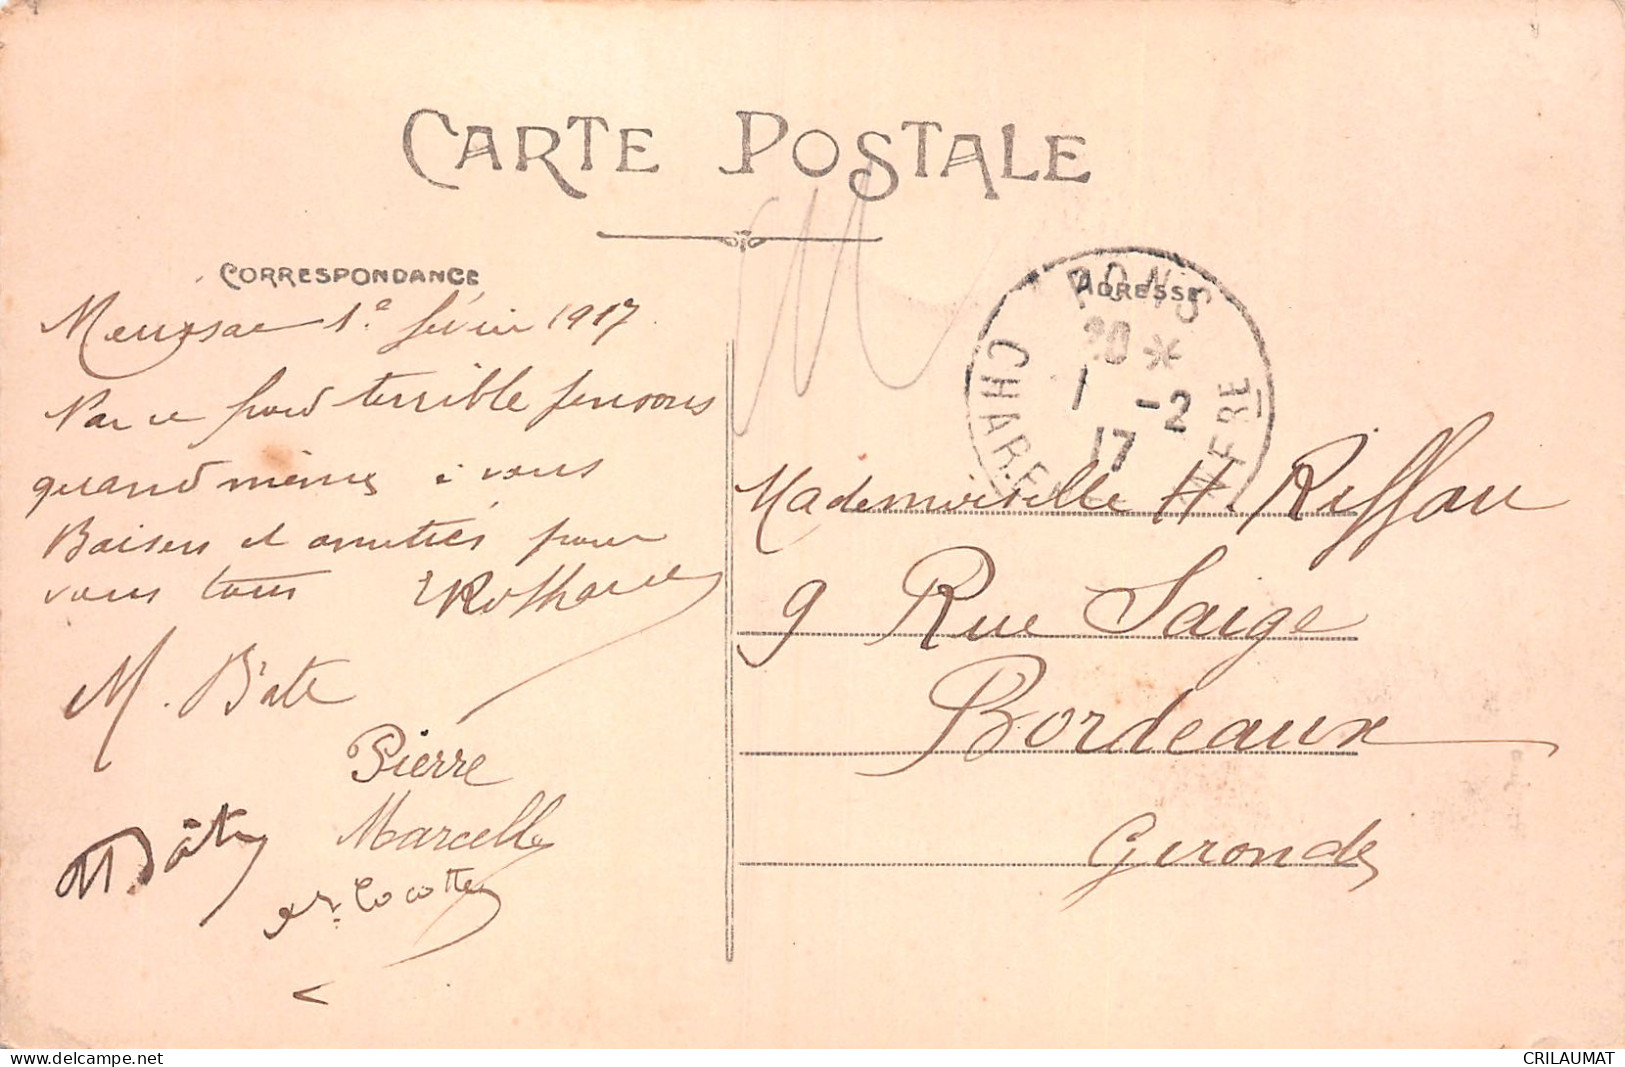 CARTE POSTALE
CORRESPONDANCE
1e février 1917
Par ce froid terrible pensons
quand même à vous
Baisers et amitiés pour
vous tous
M. Bâte
Pierre
Marcelle
M Bâte
Cocotte
ADRESSE
PONS
20 *
1 -2
17
CHARENTE INFRE
Mademoiselle H. Riffau
9 Rue Saige
Bordeaux
Gironde
delcampe.net
CRILAUMAT